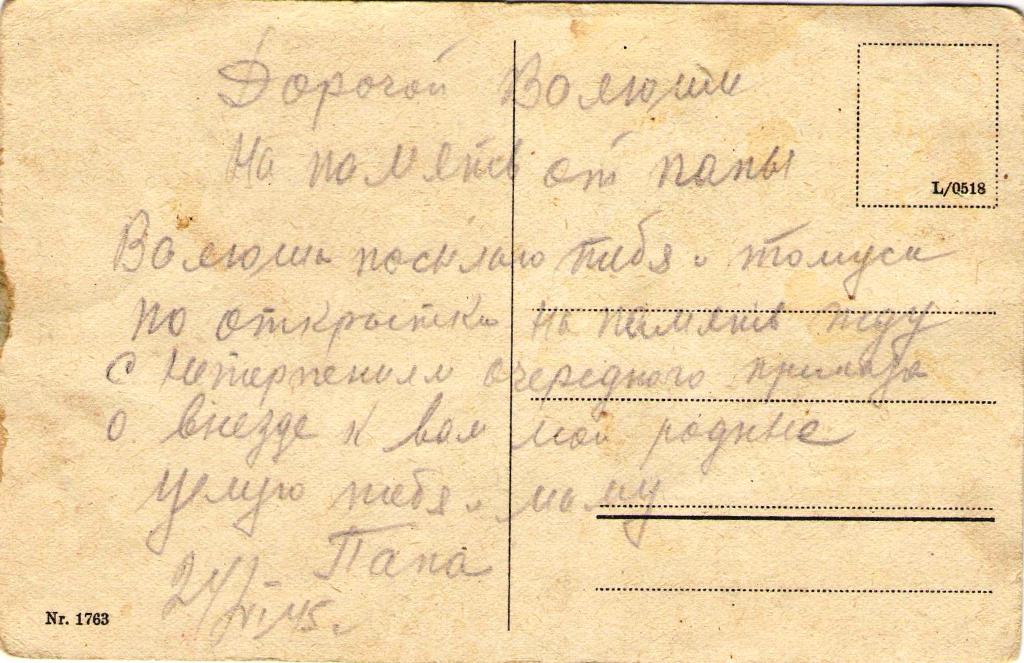 Дорогой Валюши
На память от папы
L/0518
Валюша посылаю тибя и томуси
по открытки на память жду
с нетерпением очередного приказа
о виезде к вам мои родные
Целую тебя и маму
Папа
24/VI-45г
Nr. 1763